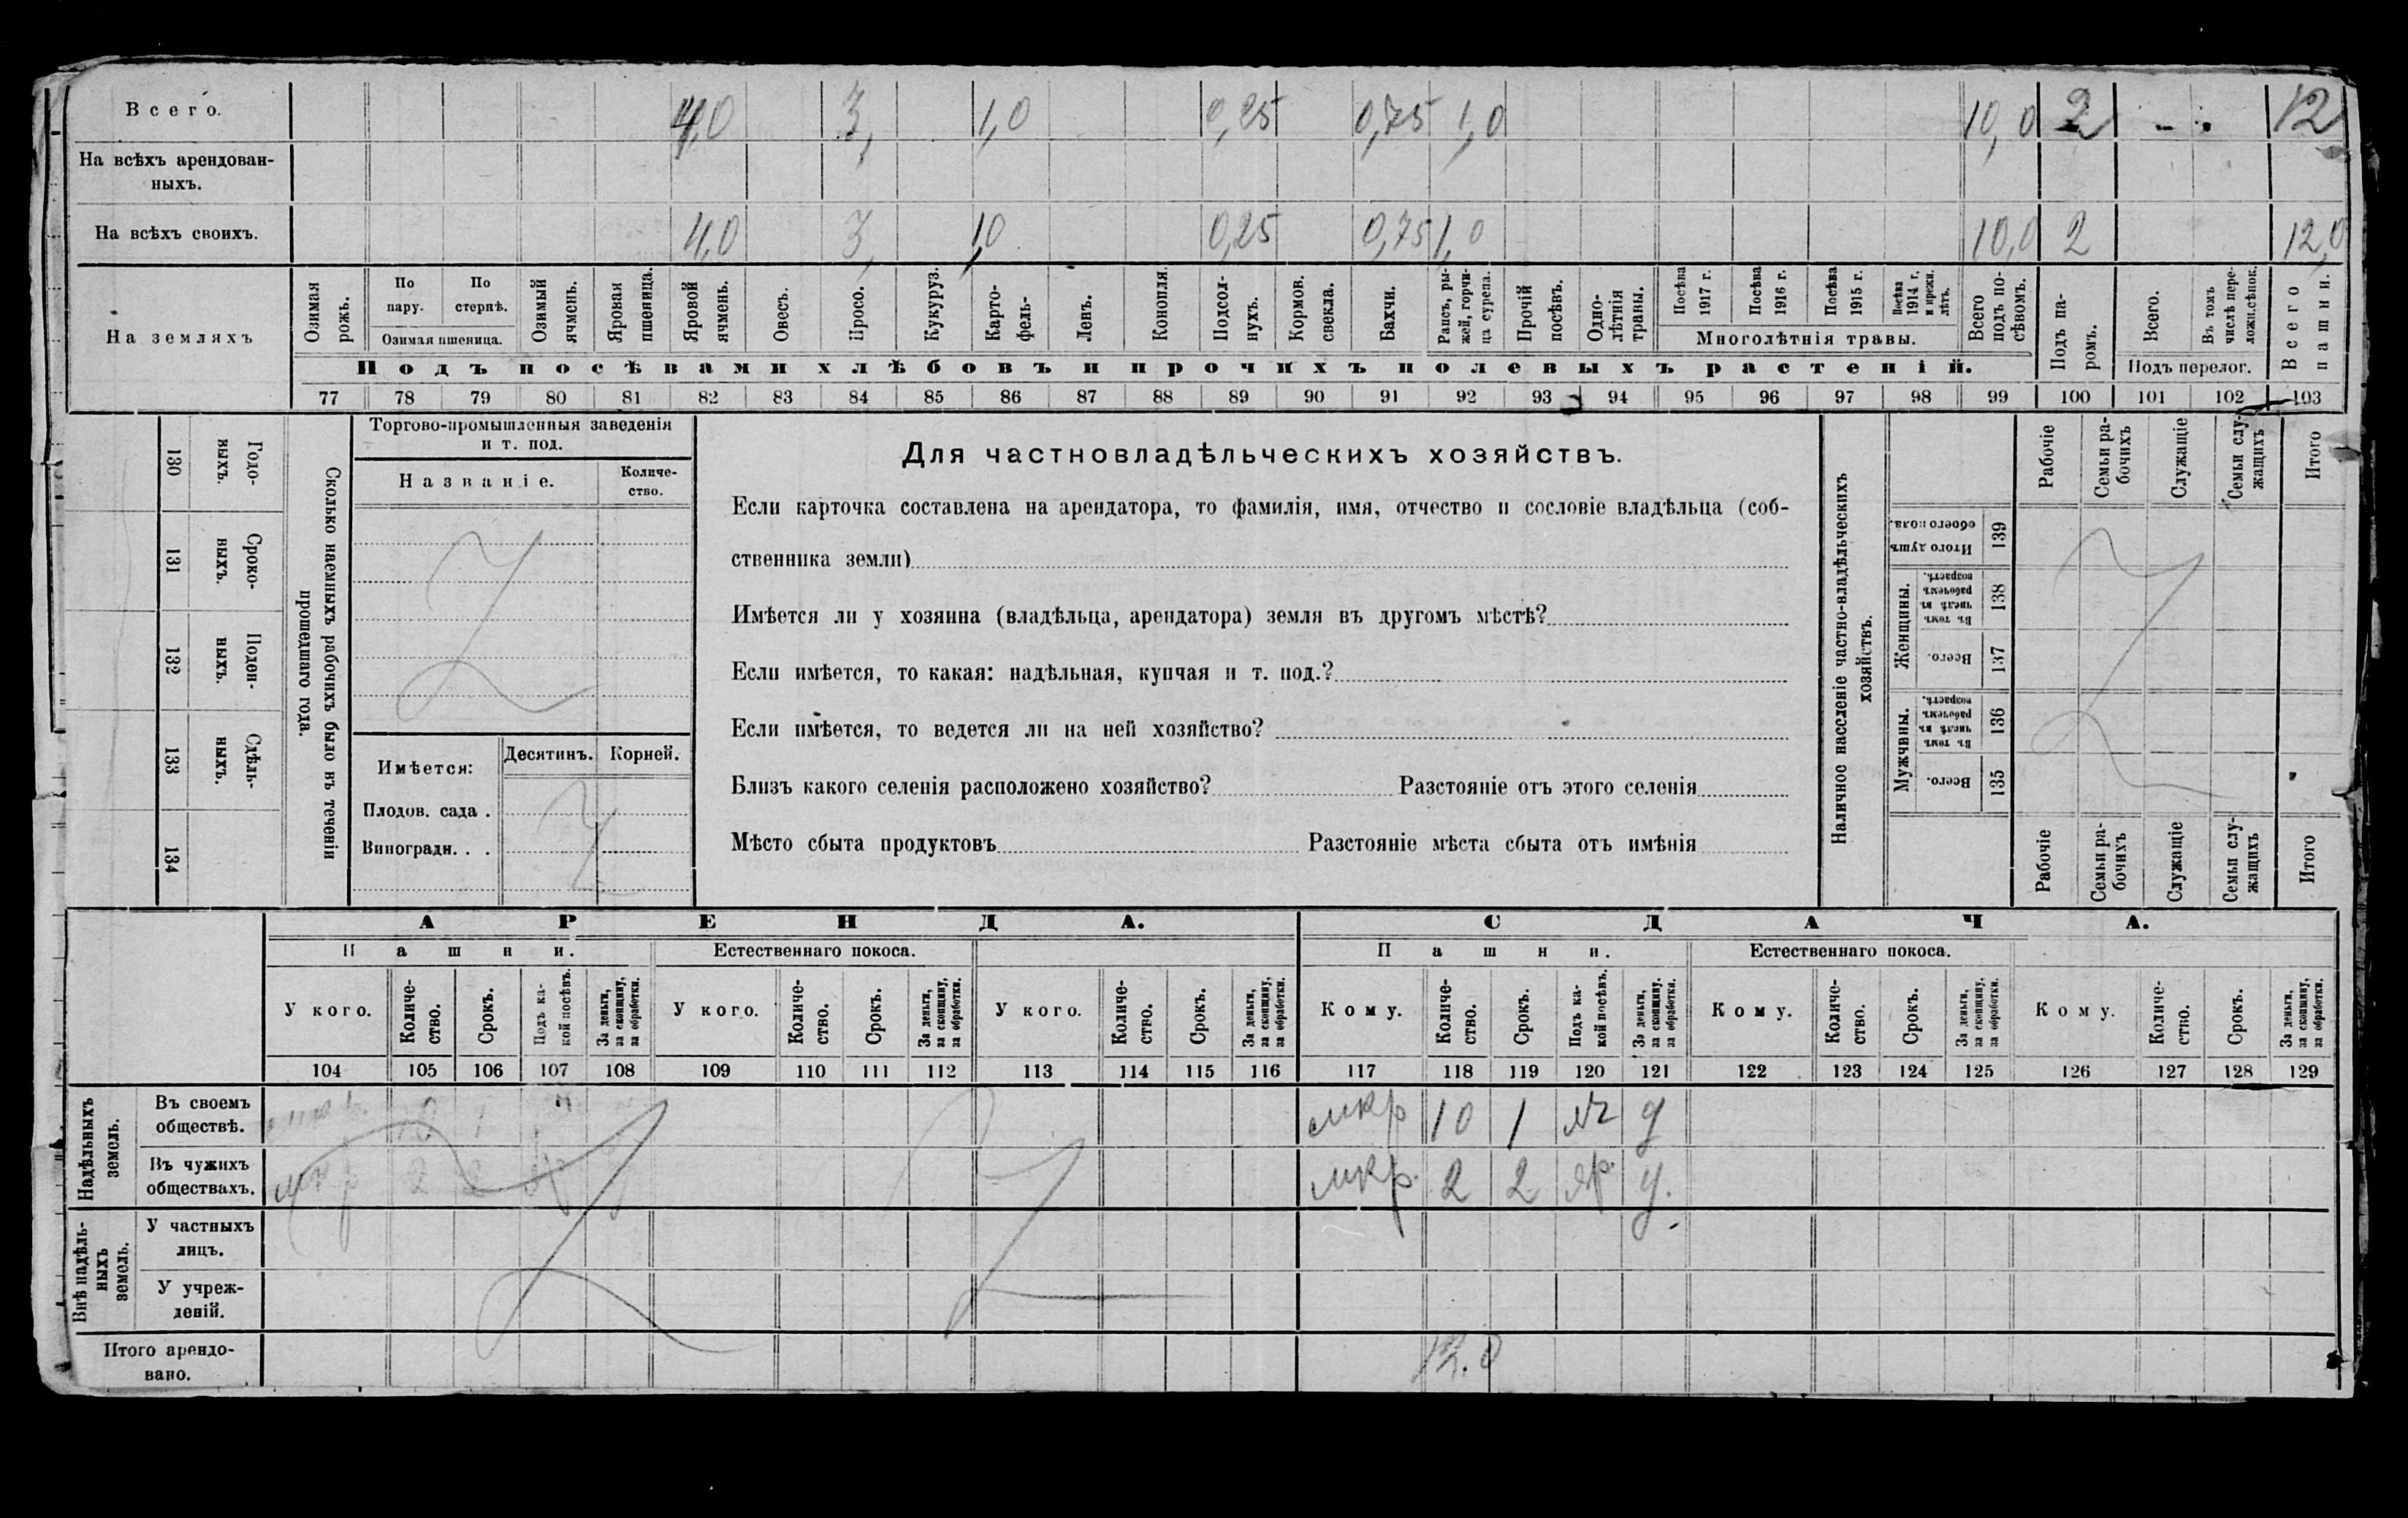 Всего. 4,0 3, 1,0 0,25 0,75 1,0 10,0 2 12
На всѣхъ арендован-
ныхъ.
На всѣхъ своихъ. 4,0 3, 1,0 0,25 0,75 1,0 10,0 2 12,0
На земляхъ
Озимая рожь.
По пару.
По стернѣ.
Озимая пшеница.
Озимый ячмень.
Яровая пшеница.
Яровой ячмень.
Овесъ.
Просо.
Кукуруз.
Карто-
фель-
Ленъ.
Конопля.
Подсол-
нухъ.
Кормов.
свекла.
Бахчи.
Рапсъ, ры-
жей, горчи-
ца сурепа.
Прочій
посѣвъ.
Одно-
лѣтнія
травы.
Посѣва
1917 г.
Посѣва
1916 г.
Посѣва
1915 г.
Посѣва
1914 г.
и прежн.
лѣтъ.
Многолѣтнія травы.
Всего
подъ по-
сѣвомъ.
Подъ па-
ромъ.
Всего.
Въ томъ
числѣ пере-
ложн.сѣнок.
Подъ перелог.
Всего
пашни.
Подъ посѣвами хлѣбовъ и прочихъ полевыхъ растеній.
77 78 79 80 81 82 83 84 85 86 87 88 89 90 91 92 93 94 95 96 97 98 99 100 101 102 103
130 Годо-
ныхъ.
131 Сроко-
ныхъ.
132 Поден-
ныхъ.
133 Сдѣль-
ныхъ.
134
Сколько наемныхъ рабочихъ было въ теченіи
прошедшаго года.
Торгово-промышленныя заведенія
и т. под.
Названіе.
Количе-
ство.
Имѣется:
Десятинъ.
Корней.
Плодов. сада .
Виноградн. . .
Для частновладѣльческихъ хозяйствъ.
Если карточка составлена на арендатора, то фамилія, имя, отчество и сословіе владѣльца (соб-
ственника земли)
Имѣется ли у хозяина (владѣльца, арендатора) земля въ другомъ мѣстѣ?
Если имѣется, то какая: надѣльная, купчая и т. под.?
Если имѣется, то ведется ли на ней хозяйство?
Близъ какого селенія расположено хозяйство? Разстояніе отъ этого селенія
Мѣсто сбыта продуктовъ Разстояніе мѣста сбыта отъ имѣнія
Наличное населеніе частно-владѣльческихъ
хозяйствъ.
Рабочіе
Семьи ра-
бочихъ
Служащіе
Семьи слу-
жащихъ
Итого
Итого душъ
обоего пола.
139
Женщины.
Въ томъ
числѣ въ
рабочемъ
возрастѣ.
138
Всего.
137
Мужчины.
Въ томъ
числѣ въ
рабочемъ
возрастѣ.
136
Всего.
135
Рабочіе
Семьи ра-
бочихъ
Служащіе
Семьи слу-
жащихъ
Итого
АРЕНДА.
СДАЧА.
Пашни.
Естественнаго покоса.
Пашни.
Естественнаго покоса.
У кого.
Количе-
ство.
Срокъ.
Подъ ка-
кой посѣвъ.
За деньги,
за скопщину,
за обработки.
У кого.
Количе-
ство.
Срокъ.
За деньги,
за скопщину,
за обработки.
У кого.
Количе-
ство.
Срокъ.
За деньги,
за скопщину,
за обработки.
Кому.
Количе-
ство.
Срокъ.
Подъ ка-
кой посѣвъ.
За деньги,
за скопщину,
за обработки.
Кому.
Количе-
ство.
Срокъ.
За деньги,
за скопщину,
за обработки.
Кому.
Количе-
ство.
Срокъ.
За деньги,
за скопщину,
за обработки.
104 105 106 107 108 109 110 111 112 113 114 115 116 117 118 119 120 121 122 123 124 125 126 127 128 129
Надѣльныхъ
земель.
Въ своемъ
обществѣ.
мкр 10 1
Въ чужихъ
обществахъ.
мкр 2 2
мкр. 2 2 яр.
Внѣ надѣль-
ныхъ
земель.
У частныхъ
лицъ.
У учреж-
деній.
Итого арендо-
вано.